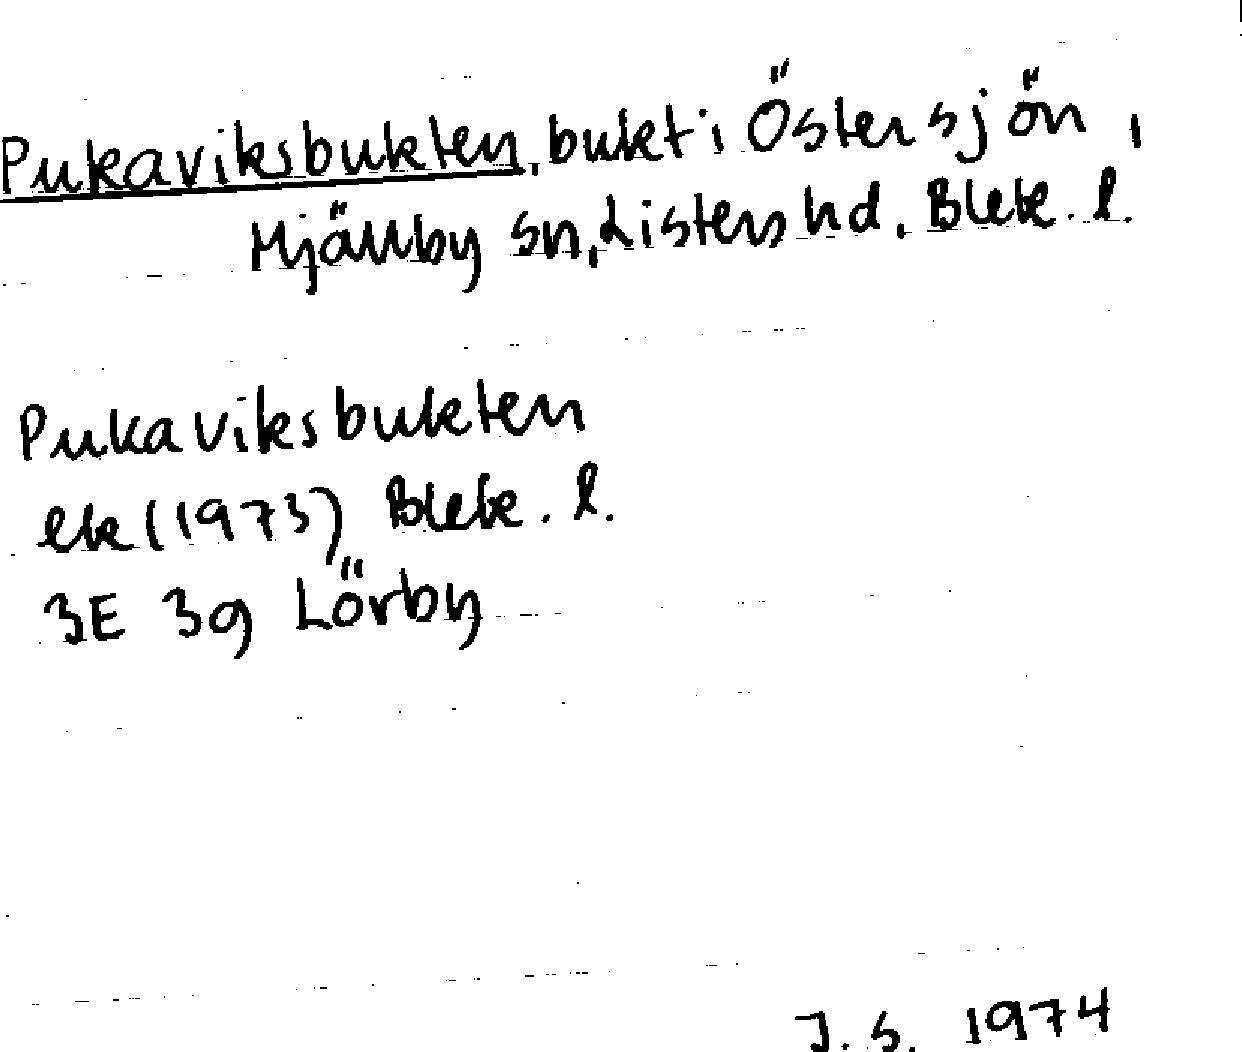 Pukaviksbukten, bukt i Östersjön,
Mjällby sn, Listers hd, Blek. l.
Pukaviksbukten
ek (1973) Blek. l.
3E 3g Lörby
J.S. 1974